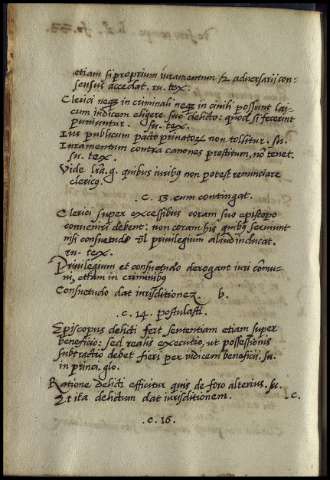 etiam si proprium iuramentum et adversarij con-
sensus accedat. in. tex.
Clerici neque in criminali neque in civili possunt lai-
cum iudicem eligere suo delicto: quod si fecerint
puniuntur. in. tex.
Ius publicum pacto privatorum non tollitur. in.
Iuramentum contra canones prestitum, no tenet.
in. tex.
Vide lra. q. quibus iuribus non potest renunciare
clericus.
.c. 13. cum contingat.
Clerici super excessibus coram suo episcopo
conveniri debent: non coram his quibus serviunt
nisi consuetudo vel privilegium aliud inducat.
in. tex.
Privilegium et consuetudo derogant iuri comu-
ni, etiam in criminibus
Consuetudo dat iurisditionem b.
.c. 14. postulasti.
Episcopus delicti fert sententiam etiam super
beneficio: sed realis executio, ut possessionis
subtractio debet fieri per iudicem beneficii. in.
in princi. glo.
Ratione delicti efficitur quis de foro alterius.
Et ita delictum dat iurisditionem. .c.
.c. 16.